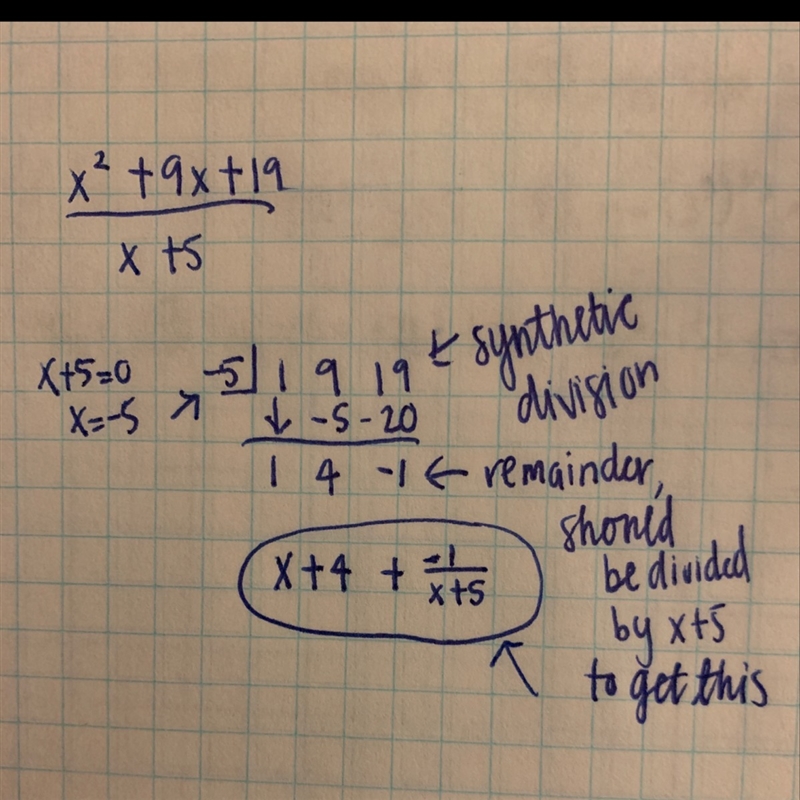 x² + 9x + 19
x + 5
x+5=0
x=-5
-5 1 9 19
↓ -5 -20
1 4 -1
← synthetic
division
← remainder,
should
be divided
by x+5
to get this
x+4 + -1/x+5